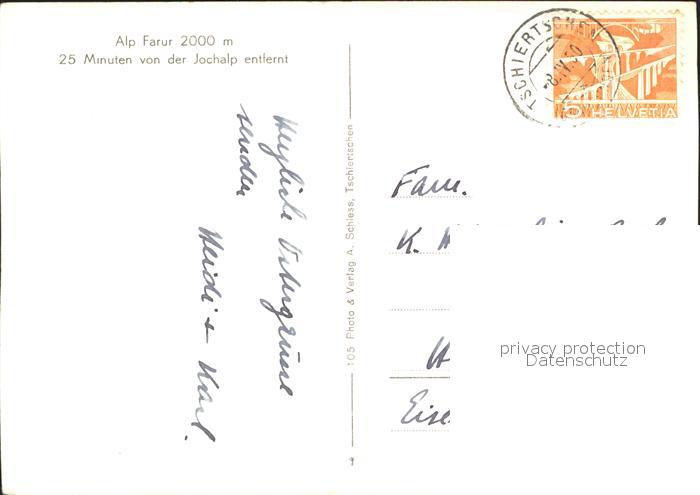 Alp Farur 2000 m
25 Minuten von der Jochalp entfernt
Herzliche Ostergrüsse
senden
Heidi + Karl.
105 Photo & Verlag A. Schiess, Tschiertschen
TSCHIERTSCHEN
-8.IV.50
5 HELVETIA
Fam.
K.
privacy protection
Datenschutz